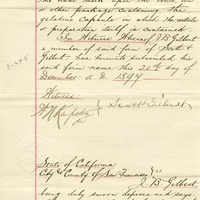 or other Package containing The
gelatine Capsule in which the article
or preparation itself is contained.
In Witness Whereof J B Gilbert
a member of said firm of Scott &
Gilbert, has hereunto subscribed the
said firm name this 20th day of
December A. D. 1894
Witness
Scott & Gilbert
State of California
City & County of San Francisco } ss
J B Gilbert,
being duly sworn deposes and says,